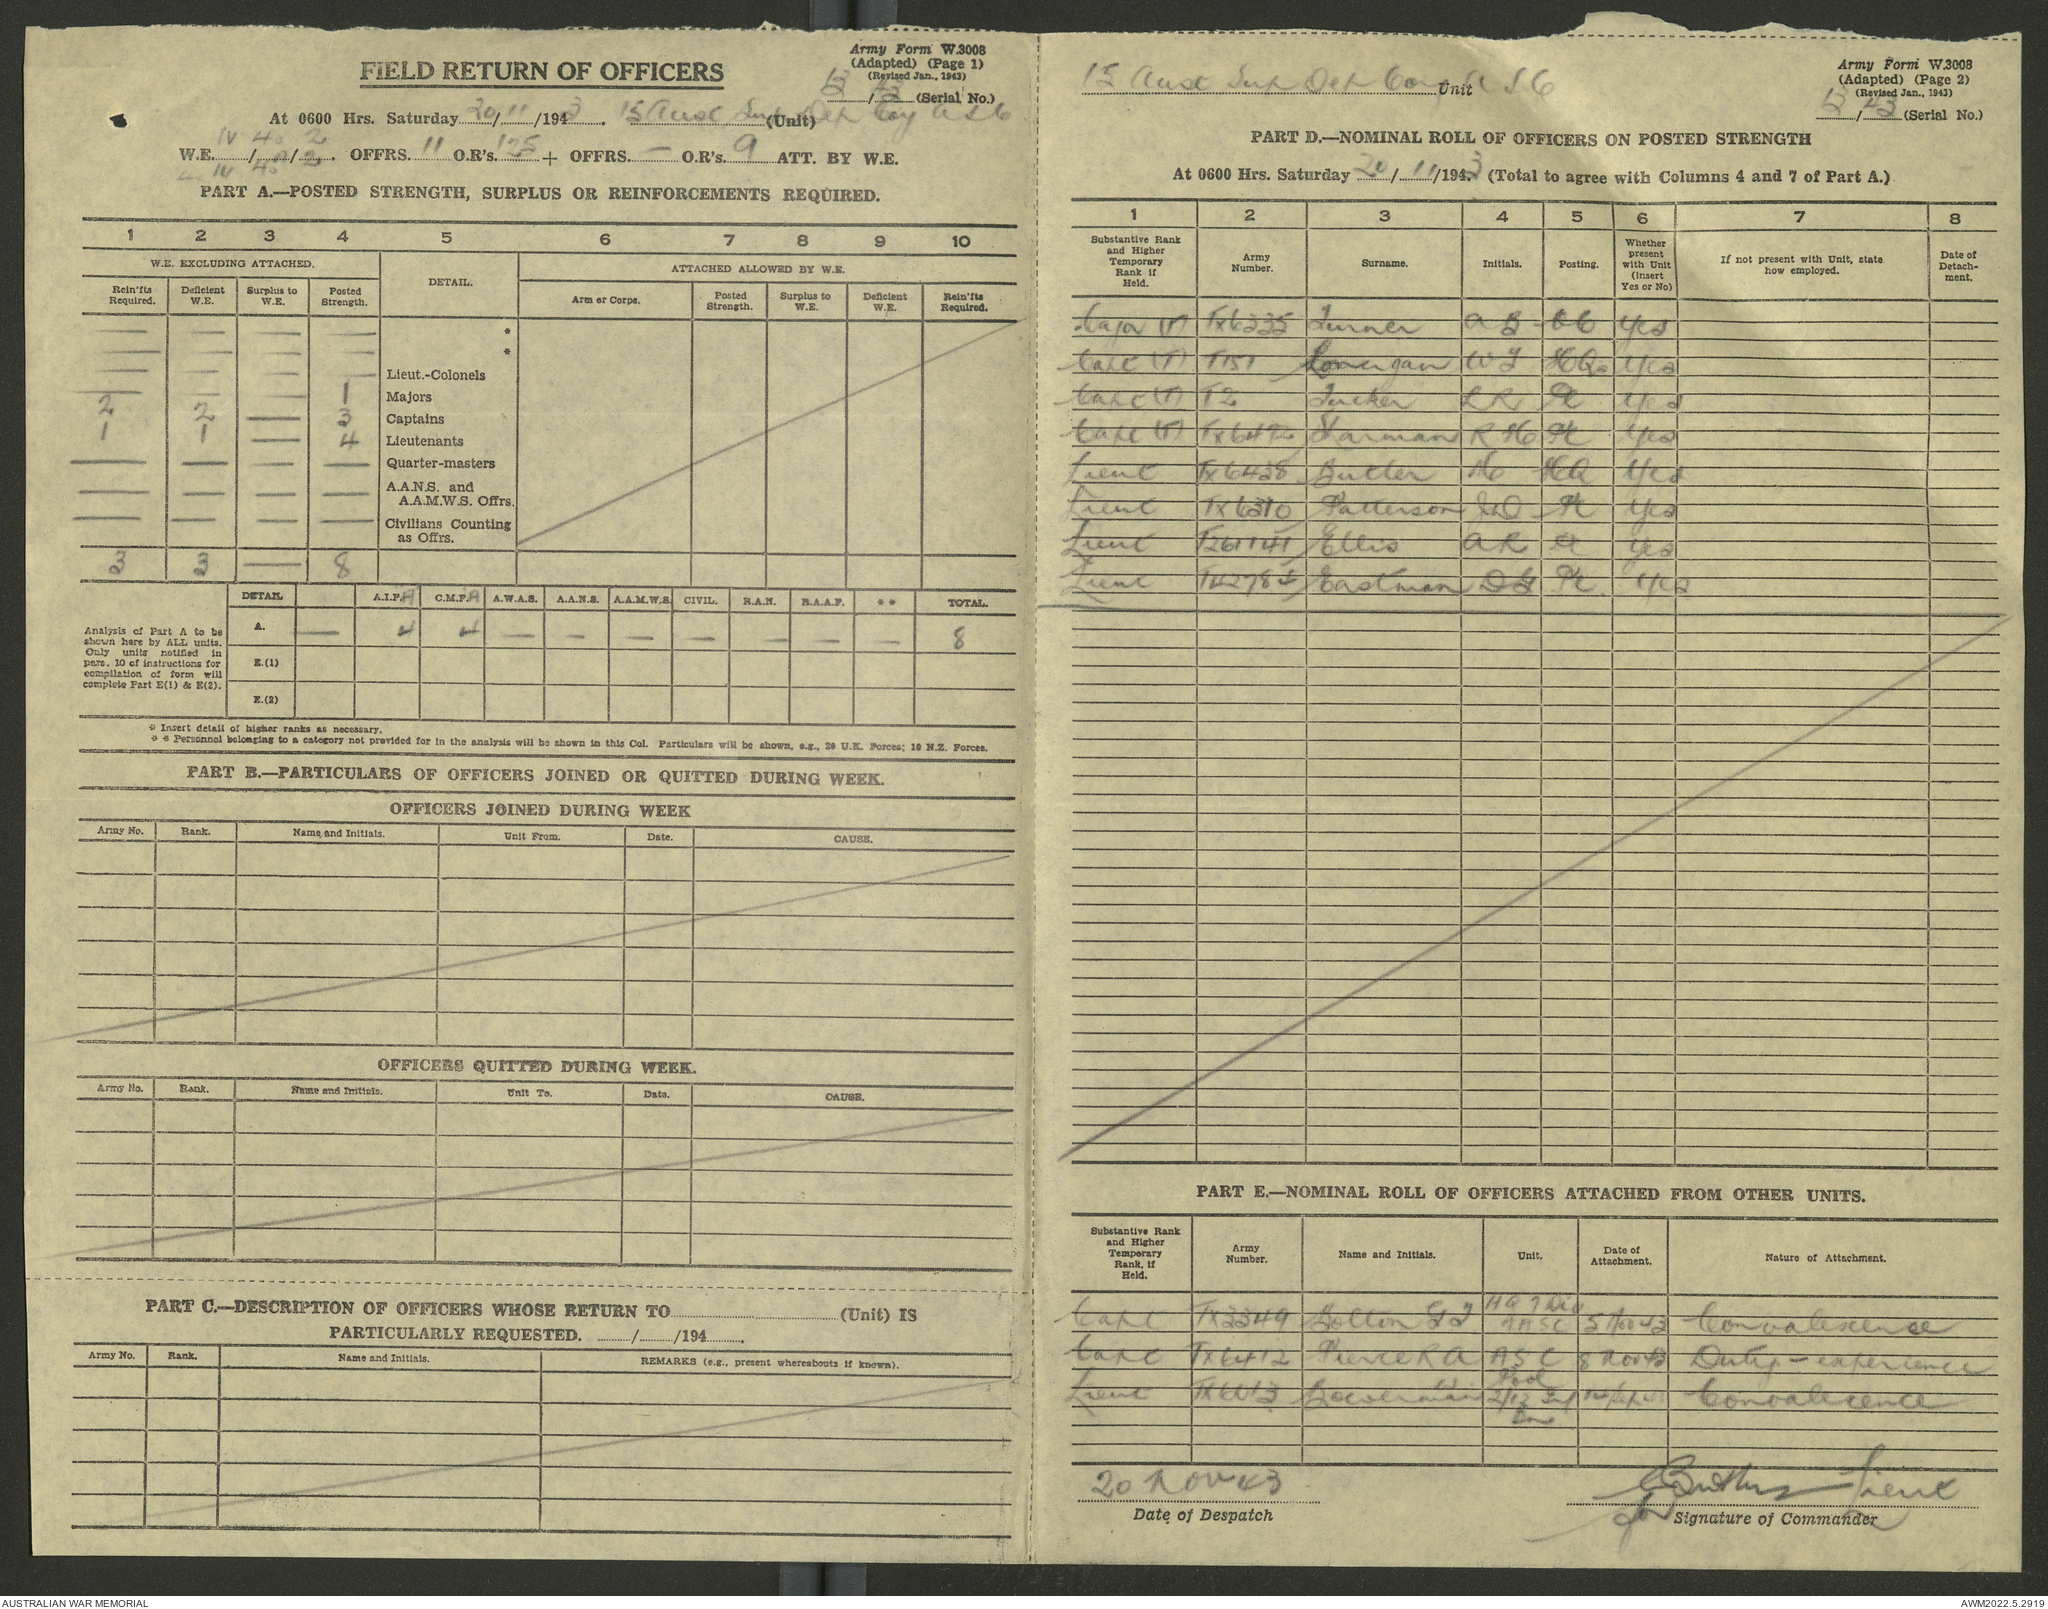 Army Form W.3008
(Adapted) (Page 1)
(Revised Jan., 1943)
FIELD RETURN OF OFFICERS
13/43 (Serial No.)
At 0600 Hrs. Saturday 20/11/1943. 15 Aust Sup Dep Coy AASC (Unit)
W.E. IV/40/2 OFFRS. 11 O.R's. 125 + OFFRS. — O.R's. 9 ATT. BY W.E.
PART A.—POSTED STRENGTH, SURPLUS OR REINFORCEMENTS REQUIRED.
1 2 3 4 5 6 7 8 9 10
W.E. EXCLUDING ATTACHED. DETAIL. ATTACHED ALLOWED BY W.E.
Rein'fts Required. Deficient W.E. Surplus to W.E. Posted Strength. Arm or Corps. Posted Strength. Surplus to W.E. Deficient W.E. Rein'fts Required.
— — — — *
— — — — *
— — — — Lieut.-Colonels
— — — 1 Majors
2 2 — 3 Captains
1 1 — 4 Lieutenants
— — — — Quarter-masters
— — — — A.A.N.S. and A.A.M.W.S. Offrs.
— — — — Civilians Counting as Offrs.
3 3 — 8
DETAIL. A.I.F. C.M.F. A.W.A.S. A.A.N.S. A.A.M.W.S. CIVIL. R.A.N. R.A.A.F. ** TOTAL.
Analysis of Part A to be
shown here by ALL units.
Only units notified in
para. 10 of instructions for
compilation of form will
complete Part E(1) & E(2).
A. — 4 4 — — — — — — — 8
E.(1)
E.(2)
* Insert detail of higher ranks as necessary.
* * Personnel belonging to a category not provided for in the analysis will be shown in this Col. Particulars will be shown, e.g., 20 U.K. Forces; 10 N.Z. Forces.
PART B.—PARTICULARS OF OFFICERS JOINED OR QUITTED DURING WEEK.
OFFICERS JOINED DURING WEEK
Army No. Rank. Name and Initials. Unit From. Date. CAUSE.
OFFICERS QUITTED DURING WEEK.
Army No. Rank. Name and Initials. Unit To. Date. CAUSE.
PART C.—DESCRIPTION OF OFFICERS WHOSE RETURN TO (Unit) IS
PARTICULARLY REQUESTED. / /194 .
Army No. Rank. Name and Initials. REMARKS (e.g., present whereabouts if known).
Army Form W.3008
(Adapted) (Page 2)
(Revised Jan., 1943)
15 Aust Sup Dep Coy AASC Unit
13/43 (Serial No.)
PART D.—NOMINAL ROLL OF OFFICERS ON POSTED STRENGTH
At 0600 Hrs. Saturday 20/11/1943 (Total to agree with Columns 4 and 7 of Part A.)
1 2 3 4 5 6 7 8
Substantive Rank and Higher Temporary Rank if Held. Army Number. Surname. Initials. Posting. Whether present with Unit (insert Yes or No) If not present with Unit, state how employed. Date of Detachment.
Major (T) TX6235 Turner A B OC Yes
Capt (T) T151 Lonergan W J HQ Yes
Capt (T) T2 Tucker L R Pl Yes
Capt (T) TX6492 Sharman R H Pl Yes
Lieut TX6438 Butler H HQ Yes
Lieut TX6310 Patterson J D Pl Yes
Lieut T261141 Ellis A R Pl Yes
Lieut Eastman D G Pl Yes
PART E.—NOMINAL ROLL OF OFFICERS ATTACHED FROM OTHER UNITS.
Substantive Rank and Higher Temporary Rank, if Held. Army Number. Name and Initials. Unit. Date of Attachment. Nature of Attachment.
Capt TX3349 Bolton G J HQ 7 Div AASC 5 Nov 43 Convalescence
Capt TX6412 Pierce R A ASC Pool 8 Nov 43 Duty - experience
Lieut TX6013 Bowerman 2/12 Inf Bn Convalescence
20 Nov 43
Date of Despatch
Butler Lieut
for Signature of Commander
AUSTRALIAN WAR MEMORIAL
AWM2022.5.2919